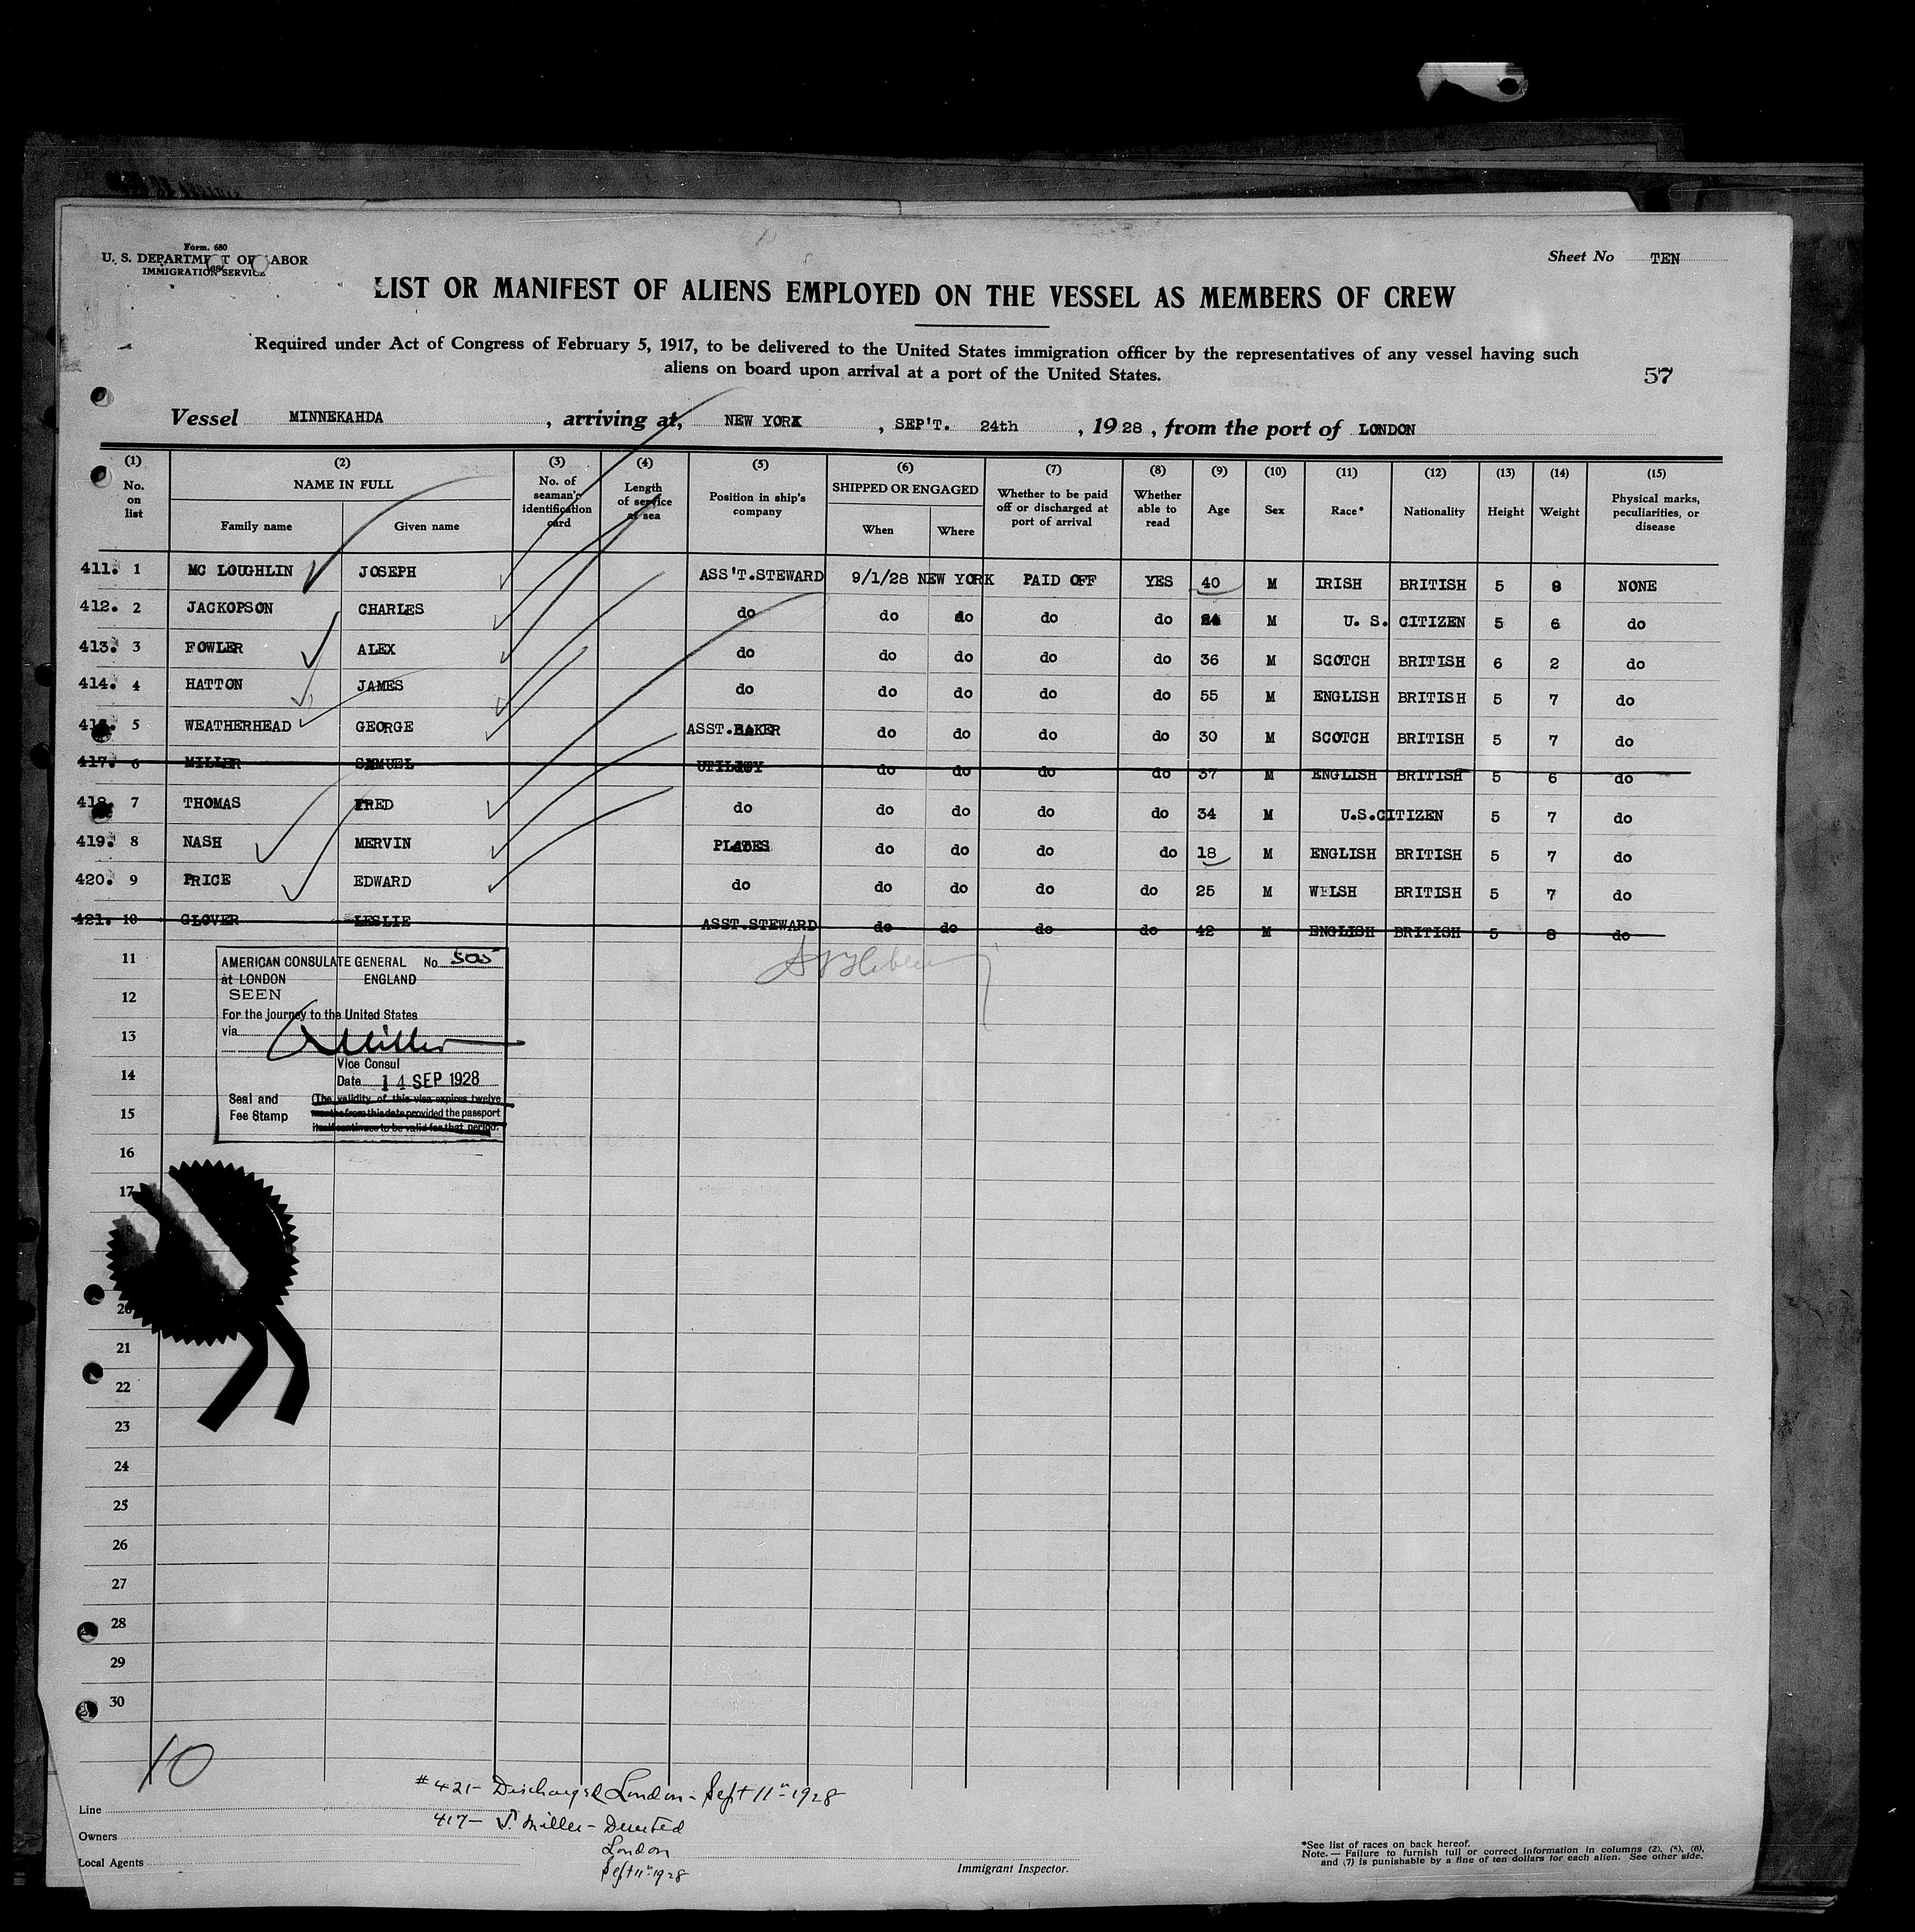 Form. 680
U. S. DEPARTMENT OF LABOR
IMMIGRATION SERVICE
Sheet No TEN
LIST OR MANIFEST OF ALIENS EMPLOYED ON THE VESSEL AS MEMBERS OF CREW
Required under Act of Congress of February 5, 1917, to be delivered to the United States immigration officer by the representatives of any vessel having such
aliens on board upon arrival at a port of the United States.
57
Vessel MINNEKAHDA , arriving at, NEW YORK , SEP'T. 24th , 1928 , from the port of LONDON
(1) (2) (3) (4) (5) (6) (7) (8) (9) (10) (11) (12) (13) (14) (15)
No. on list NAME IN FULL Family name Given name No. of seaman's identification card Length of service at sea Position in ship's company SHIPPED OR ENGAGED When Where Whether to be paid off or discharged at port of arrival Whether able to read Age Sex Race* Nationality Height Weight Physical marks, peculiarities, or disease
411. 1 MC LOUGHLIN JOSEPH ASS'T.STEWARD 9/1/28 NEW YORK PAID OFF YES 40 M IRISH BRITISH 5 8 NONE
412. 2 JACKOPSON CHARLES do do do do do M U. S. CITIZEN 5 6 do
413. 3 FOWLER ALEX do do do do do 36 M SCOTCH BRITISH 6 2 do
414. 4 HATTON JAMES do do do do do 55 M ENGLISH BRITISH 5 7 do
5 WEATHERHEAD GEORGE ASST.BAKER do do do do 30 M SCOTCH BRITISH 5 7 do
417. 6 MILLER SAMUEL UTILITY do do do do 37 M ENGLISH BRITISH 5 6 do
418. 7 THOMAS FRED do do do do do 34 M U.S.CITIZEN 5 7 do
419. 8 NASH MERVIN PLATES do do do do 18 M ENGLISH BRITISH 5 7 do
420. 9 PRICE EDWARD do do do do do 25 M WELSH BRITISH 5 7 do
421. 10 GLOVER LESLIE ASST.STEWARD do do do do 42 M ENGLISH BRITISH 5 8 do
11
AMERICAN CONSULATE GENERAL No. 505
at LONDON ENGLAND
SEEN
12
For the journey to the United States
via
13
Miller
Vice Consul
14
Date 14 SEP 1928
Seal and Fee Stamp
(The validity of this visa expires twelve
months from this date provided the passport
itself continues to be valid for that period.
15
16
17
20
21
22
23
24
25
26
27
28
29
30
10
#421- Discharged London - Sept 11th 1928
Line
417- S. Miller - Deserted
Owners
London
Local Agents
Sept 11th 1928
Immigrant Inspector.
*See list of races on back hereof.
Note.— Failure to furnish full or correct information in columns (2), (5), (6),
and (7) is punishable by a fine of ten dollars for each alien. See other side.